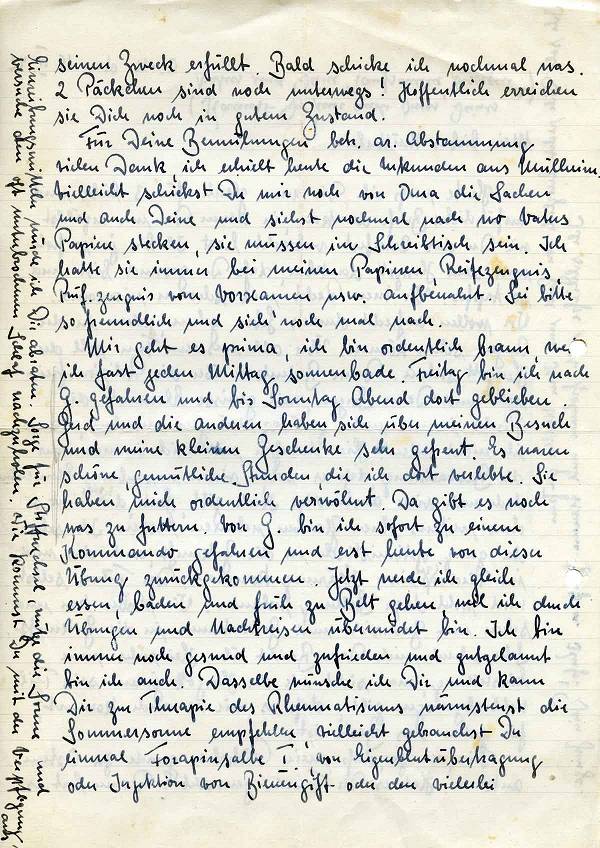 seinen Zweck erfüllt. Bald schicke ich nochmal was.
2 Päckchen sind noch unterwegs! Hoffentlich erreichen
sie Dich noch in gutem Zustand.
Für Deine Bemühungen betr. ar. Abstammung
vielen Dank, ich erhielt heute die Urkunden aus Mülheim.
Vielleicht schickst Du mir noch von Oma die Sachen
und auch Deine und siehst nochmal nach wo Vaters
Papiere stecken, sie müssen im Schreibtisch sein. Ich
hatte sie immer bei meinen Papieren, Reifezeugnis,
Prüf.zeugnis vom Vorexamen usw. aufbewahrt. Sei bitte
so freundlich und sieh' noch mal nach.
Mir geht es prima, ich bin ordentlich braun, weil
ich fast jeden Mittag sonnenbade. Freitag bin ich nach
G. gefahren und bis Sonntag Abend dort geblieben.
und die anderen haben sich über meinen Besuch
und meine kleinen Geschenke sehr gefreut. Es waren
schöne, gemütliche Stunden, die ich dort verlebte. Sie
haben mich ordentlich verwöhnt. Da gibt es noch
was zu futtern. Von G. bin ich sofort zu einem
Kommando gefahren und erst heute von dieser
Übung zurückgekommen. Jetzt werde ich gleich
essen, baden und früh zu Bett gehen, weil ich durch
Übungen und Nachtreisen übermüdet bin. Ich bin
immer noch gesund und zufrieden und gutgelaunt
bin ich auch. Dasselbe wünsche ich Dir und kann
Dir zur Therapie des Rheumatismus wärmstens die
Sommersonne empfehlen, vielleicht gebrauchst Du
einmal Forapinsalbe I, von Eigenblutübertragung
oder Injektion von Bienengift oder den vielerlei
Einreibungsmitteln würde ich Dir abraten. Sorge für Stoffwechsel, nütze die Sonne und
versuche den oft unterbrochenen Schlaf nachzuholen. Wie kommst Du mit der Verpflegung
aus